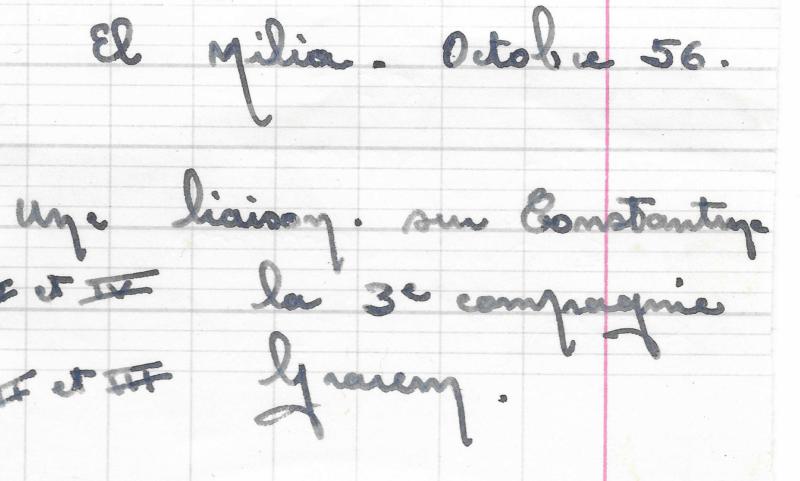 El Milia. Octobre 56.
Une liaison. sur Constantine
I et IV la 3e compagnie
II et III Grarem.